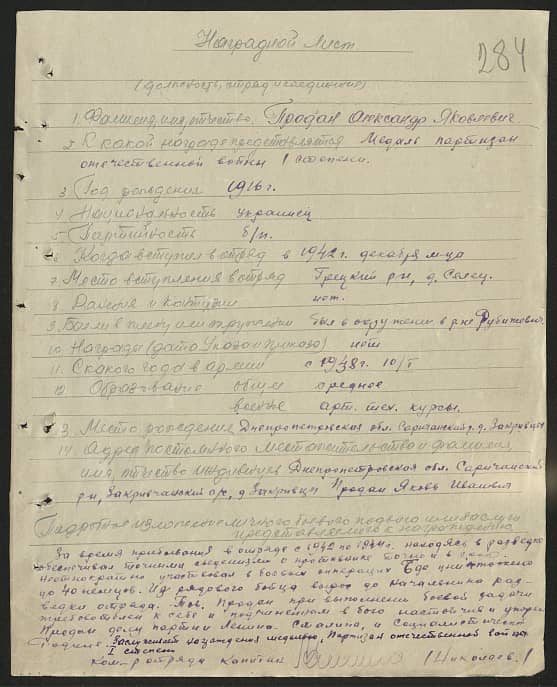 Наградной Лист.
284
(должность, отряд и соединение)
1. Фамилия, имя, отчество Продан Александр Яковлевич.
2. К какой награде представляется Медаль партизан
отечественной войны I степени.
3. Год рождения 1916 г.
4. Национальность Украинец
5. Партийность б/п.
6. Когда вступил в отряд в 1942 г. декабря м-ца
7. Место вступления в отряд Грецкий р-н, д. Селец.
8. Ранения и контузии нет.
9. Был ли в плену или окружении был в окружении в р-не
10. Награды (дата Указа и приказа) нет
11. С какого года в армии с 1938 г. 10/I
12. Образование общее среднее
военное арт. тех. курсы.
13. Место рождения Днепропетровская обл. р. д.
14. Адрес постоянного местожительства и фамилия,
имя, отчество Днепропетровская обл.
р-н, с/с, Продан Яков Иванович
Подробное изложение личного боевого подвига или заслуг
представляемого к награждению
За время пребывания в отряде с 1942 по 1944 г. находясь в разведке
обеспечивал точными сведениями о противнике точно и в срок.
Неоднократно участвовал в боевых операциях где уничтожено
до 40 немцев. Из рядового бойца вырос до начальника раз-
ведки отряда. Тов. Продан при выполнении боевой задачи
требователен к себе и подчиненным в бою настойчив и упорен
Предан делу партии Ленина Сталина, и Социалистичес
Родине. Заслуживает награждения медалью, Партизан отечественной войны
I степени
Ком-р отряда капитан (Николаев.)